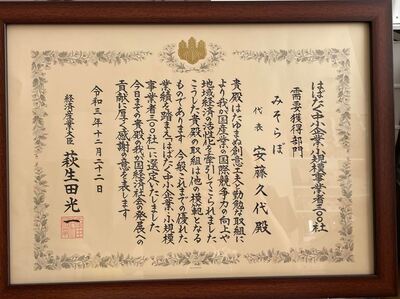 はばたく中小企業・小規模事業者三〇〇社
需要獲得部門
みそらぼ
代表 安藤久代殿
貴殿はたゆまぬ創意工夫と勤勉な取組に
より我が国産業の国際競争力の向上や
地域経済の活性化を牽引してこられました
こうした貴殿の取組は他の模範となる
ものであります 今般これまでの優れた
業績を踏まえ「はばたく中小企業・小規模
事業者三〇〇社」に選定いたしました
今日までの貴殿の我が国経済社会の発展への
貢献に厚く感謝の意を表します
令和三年十二月二十二日
経済産業大臣
萩生田光一